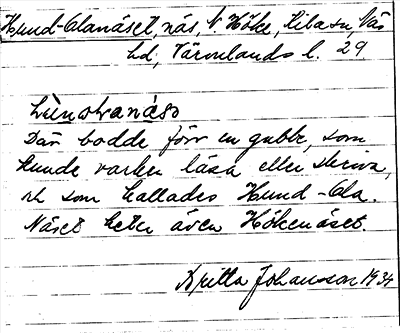 Hund-Olanäset, näs, V. Höke, Libasn, Väs
hd, Värmlands l. 29
Där bodde förr en gubbe, som
kunde varken läsa eller skriva,
och som kallades Hund-Ola.
Näset heter även Hökenäset.
Britta Johansson 1934